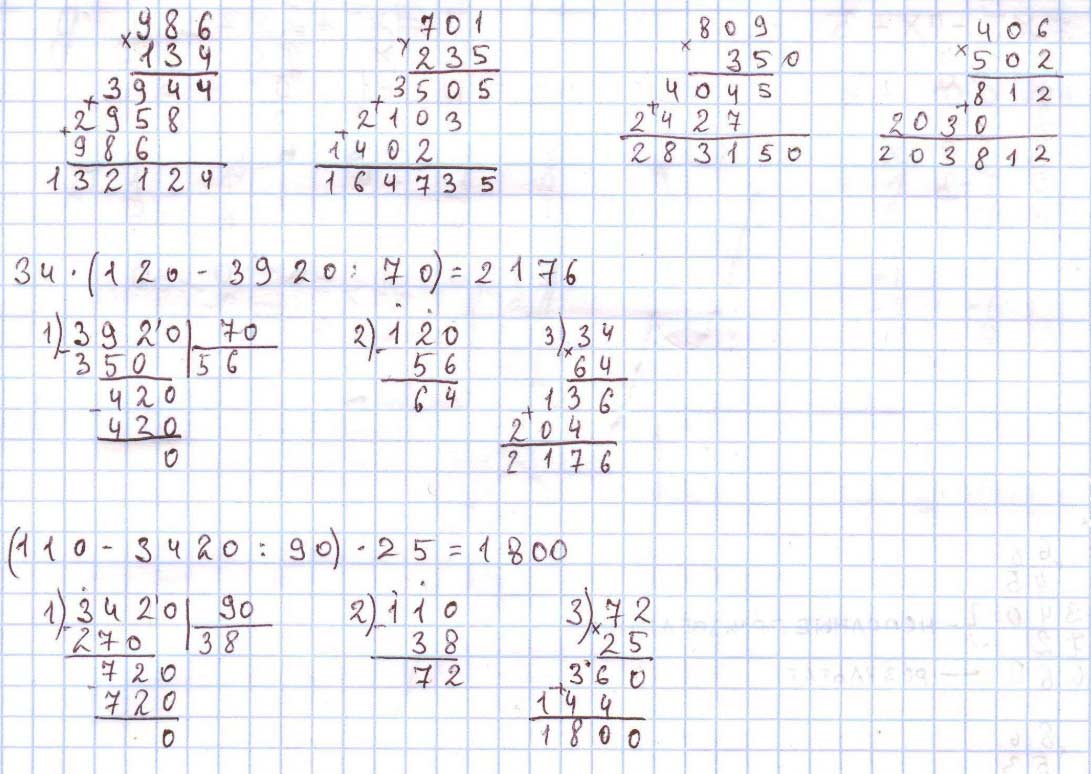 986 701 809 406
× 134 × 235 × 350 × 502
3944 3505 4045 812
+ 2958 + 2103 + 2427 + 2030
+ 986 + 1402 283150 203812
132124 164735
34 · (120 - 3920 : 70) = 2176
1) 3920 | 70 2) 120 3) 34
- 350 | 56 - 56 × 64
420 64 136
- 420 + 204
0 2176
(110 - 3420 : 90) · 25 = 1800
1) 3420 | 90 2) 110 3) 72
- 270 | 38 - 38 × 25
720 72 360
- 720 + 144
0 1800